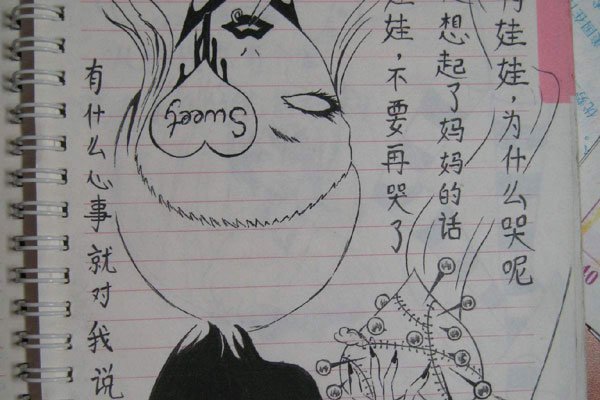 娃娃,为什么哭呢
想起了妈妈的话
娃,不要再哭了
有什么心事就对我说
Sweety
10